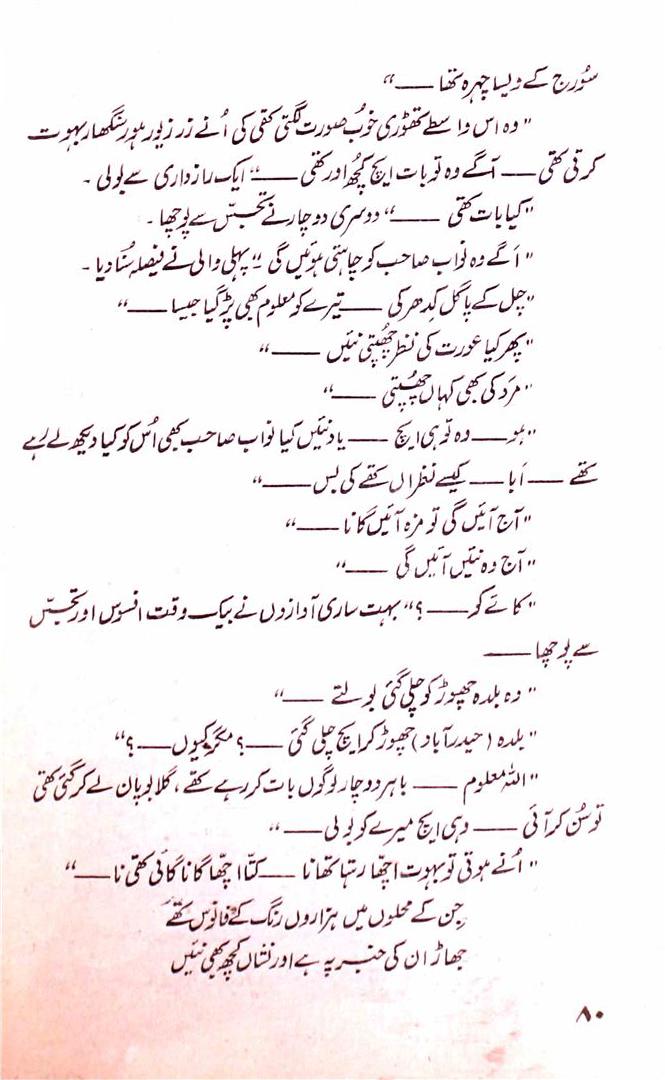 سُورج کے ویسا چہرہ تھا ——"
"وہ اس واسطے تھوڑی خوُب صورت لگتی تھی کی اُنے زر زیور ہور سنگھار بہوت
کرتی تھی —— آگے وہ تو بات ایچ کچھُ اور تھی ——" ایک رازداری سے بولی ۔
"کیا بات تھی ——" دوسری دو چار نے تجسّس سے پوچھا ۔
"اَگے وہ نواب صاحب کو چاہتی ہوئیں گی" پہلی والی نے فیصلہ سُنا دیا ۔
"چل گے پاگل کِدھر کی —— تیرے کو معلوم بھی پڑ گیا جیسا ——"
"پھر کیا عورت کی نظر چھُپتی نئیں ——"
"مَرد کی بھی کہاں چھُپتی ——"
"ہو —— وہ تو ہی ایچ —— یاد نئیں کیا نواب صاحب بھی اُس کو کیا دیکھ لے رہے
تھے —— اَبا —— کیسے نظراں تھے کی بس ——"
"آج آئیں گی تو مزہ آئیں گا نا ——"
"آج وہ نئیں آئیں گی ——"
"کائے کو —— ؟" بہت ساری آوازوں نے بیک وقت افسوس اور تجسّس
سے پوچھا ——
"وہ بلدہ چھوڑ کو چلی گئی بولتے ——"
"بلدہ (حیدرآباد) چھوڑ کر ایچ چلی گئی —— ؟ مگر کیوں —— ؟"
"اللہ معلوم —— باہر دو چار لوگوں بات کر رہے تھے، گلابو پان لے کر گئی تھی
تو سُن کر آئی —— وہی ایچ میرے کو بولی ——"
"اُنے ہوتی تو بہوت اچھّا رہتا تھا نا —— کتّا اچھّا گانا گائی تھی نا ——"
جن کے محلوں میں ہزاروں رنگ کے فانوس تھے
جھاڑ ان کی قبر پہ ہے اور نشاں کچھ بھی نئیں
۸۰